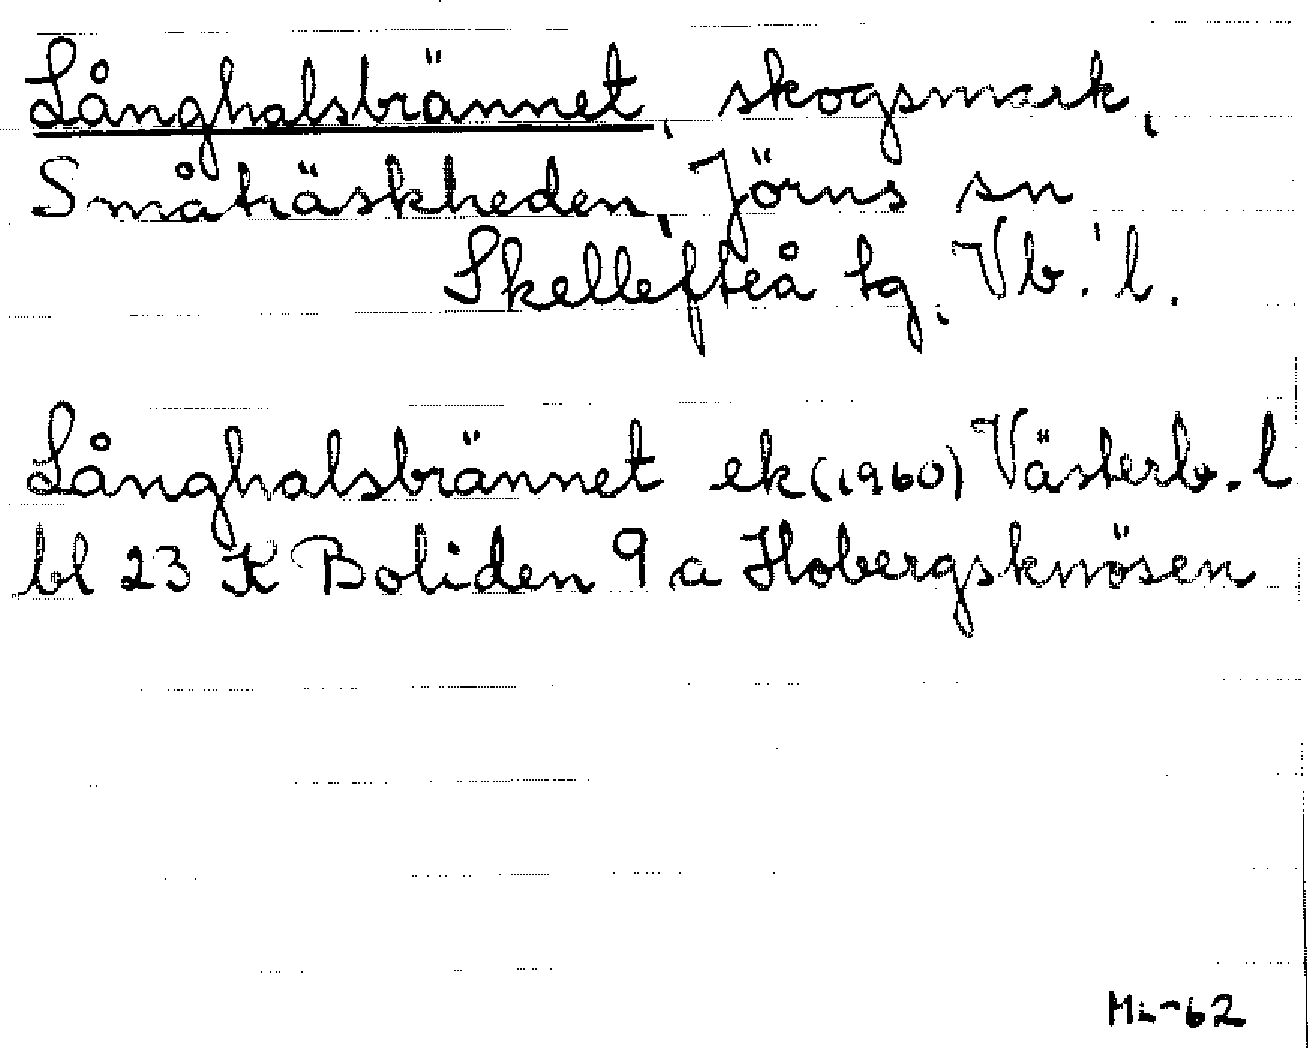 Långhalsbrännet, skogsmark,
Småträskheden, Jörns sn
Skellefteå tg, Vb. l.
Långhalsbrännet ek (1960) Västerb. l
bl 23 K Boliden 9 a Hobergsknösen
-62